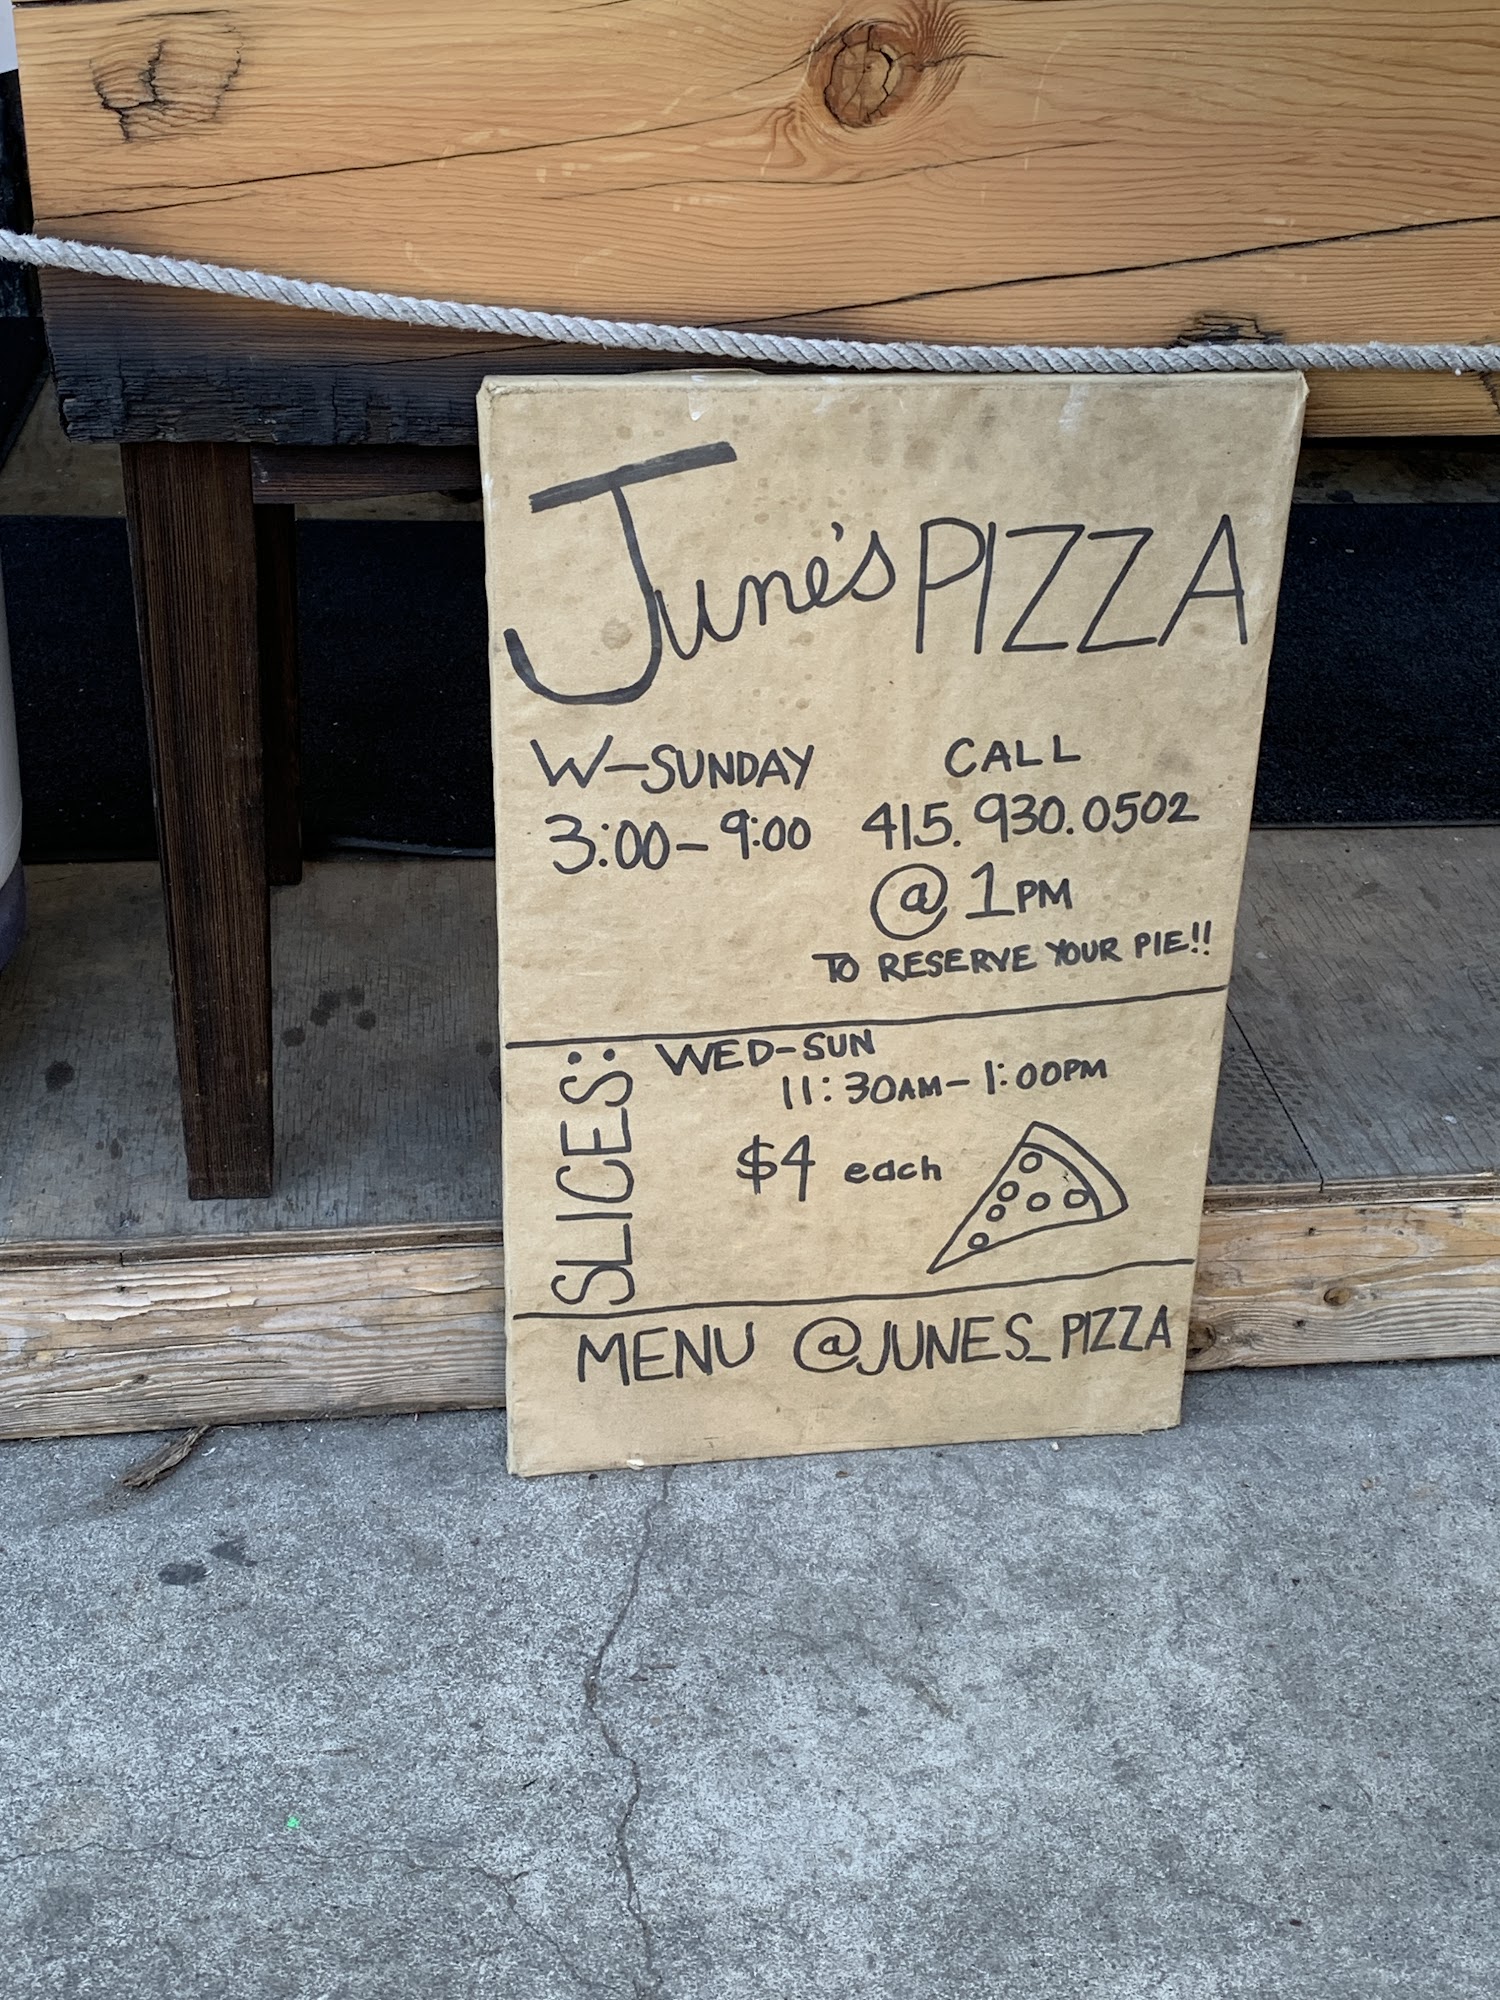 June's PIZZA
W-SUNDAY
3:00-9:00
CALL
415.930.0502
@ 1PM
TO RESERVE YOUR PIE!!
SLICES:
WED-SUN
11:30AM-1:00PM
$4 each
MENU @JUNES_PIZZA